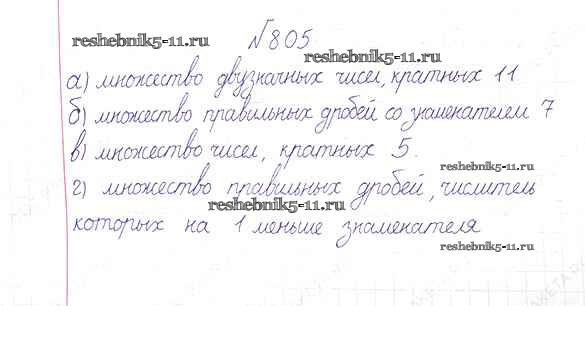 №805
reshebnik5-11.ru
reshebnik5-11.ru
а) множество двузначных чисел, кратных 11
б) множество правильных дробей со знаменателем 7
в) множество чисел, кратных 5.
reshebnik5-11.ru
г) множество правильных дробей, числитель
reshebnik5-11.ru
которых на 1 меньше знаменателя
reshebnik5-11.ru